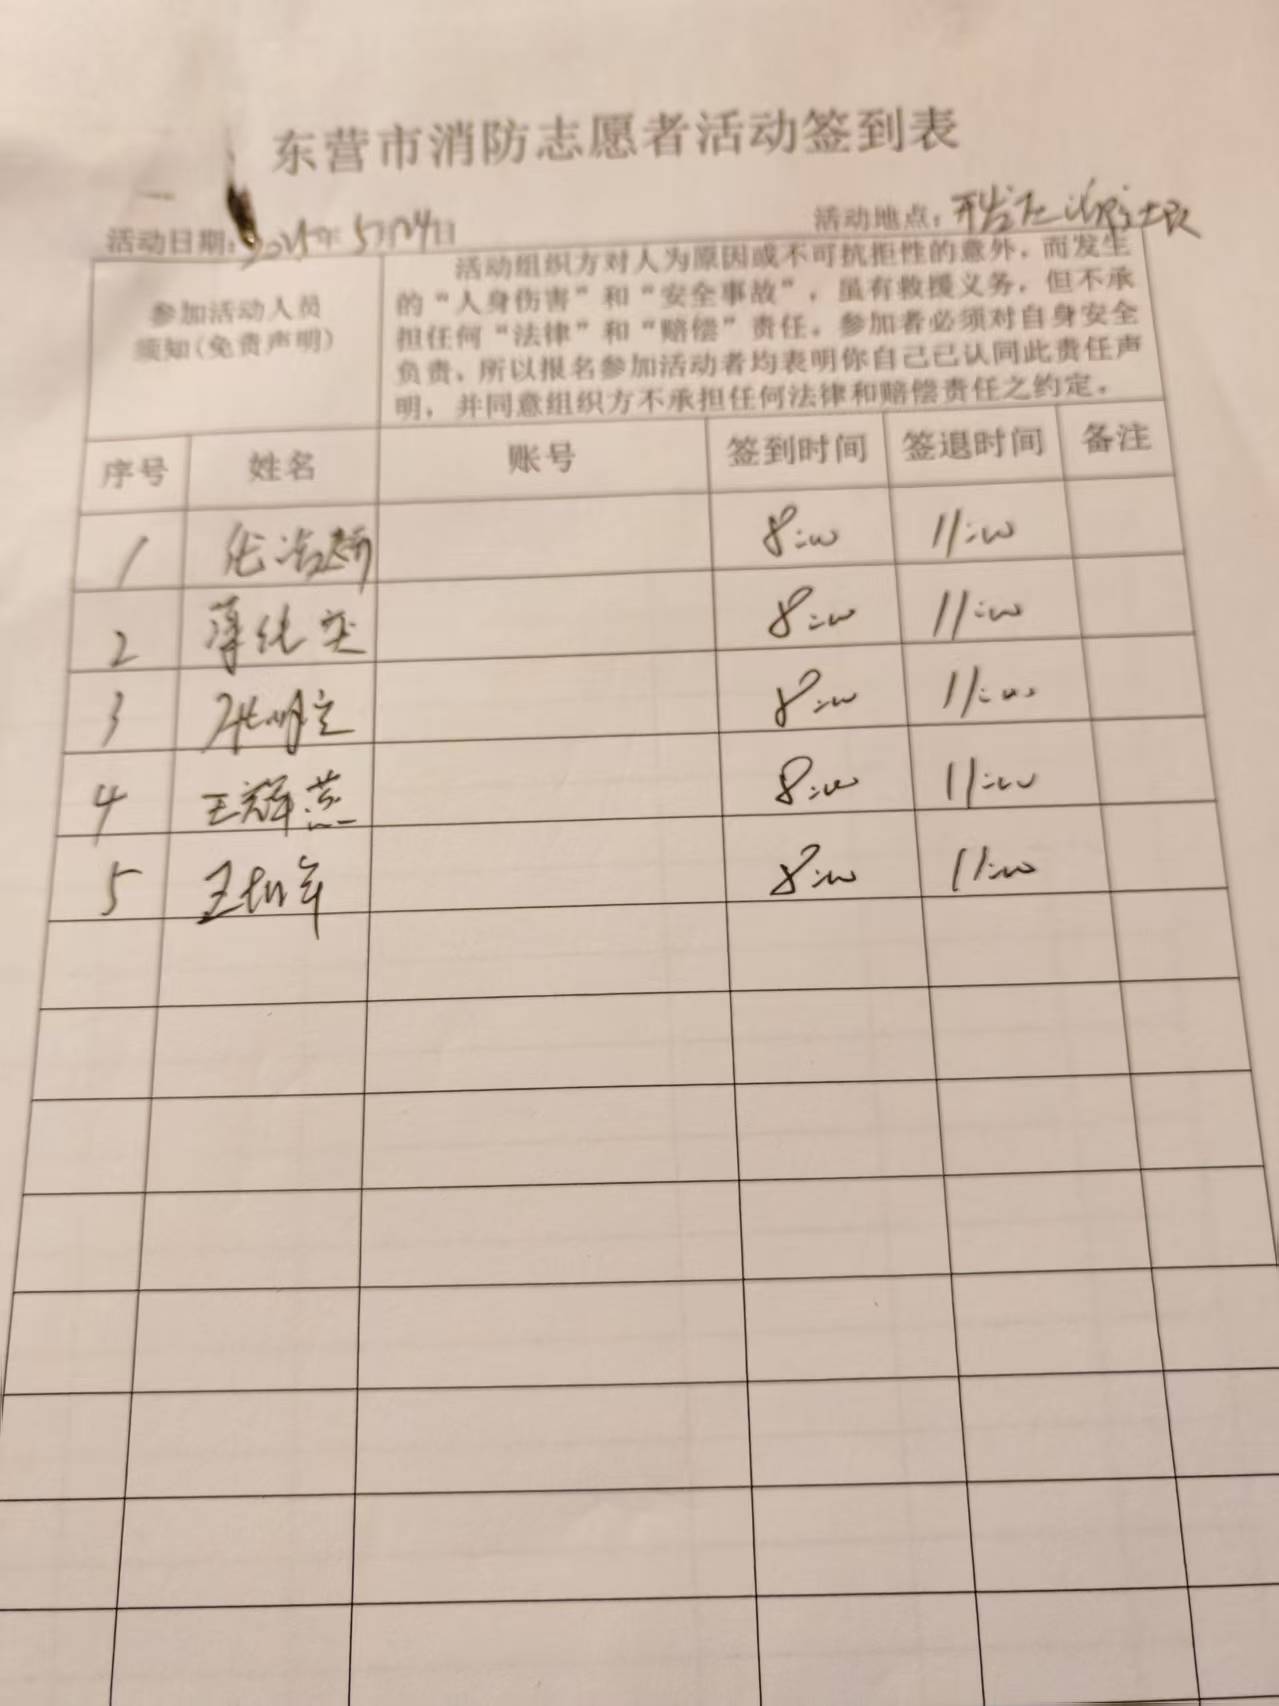 东营市消防志愿者活动签到表
活动日期：2025年5月24日 活动地点：开发区消防大队
参加活动人员
须知（免责声明）
活动组织方对人为原因或不可抗拒性的意外，而发生
的“人身伤害”和“安全事故”，虽有救援义务，但不承
担任何“法律”和“赔偿”责任。参加者必须对自身安全
负责，所以报名参加活动者均表明你自己已认同此责任声
明，并同意组织方不承担任何法律和赔偿责任之约定。
序号 姓名 账号 签到时间 签退时间 备注
1 8:00 11:00
2 8:00 11:00
3 8:00 11:00
4 王辉燕 8:00 11:00
5 8:00 11:00